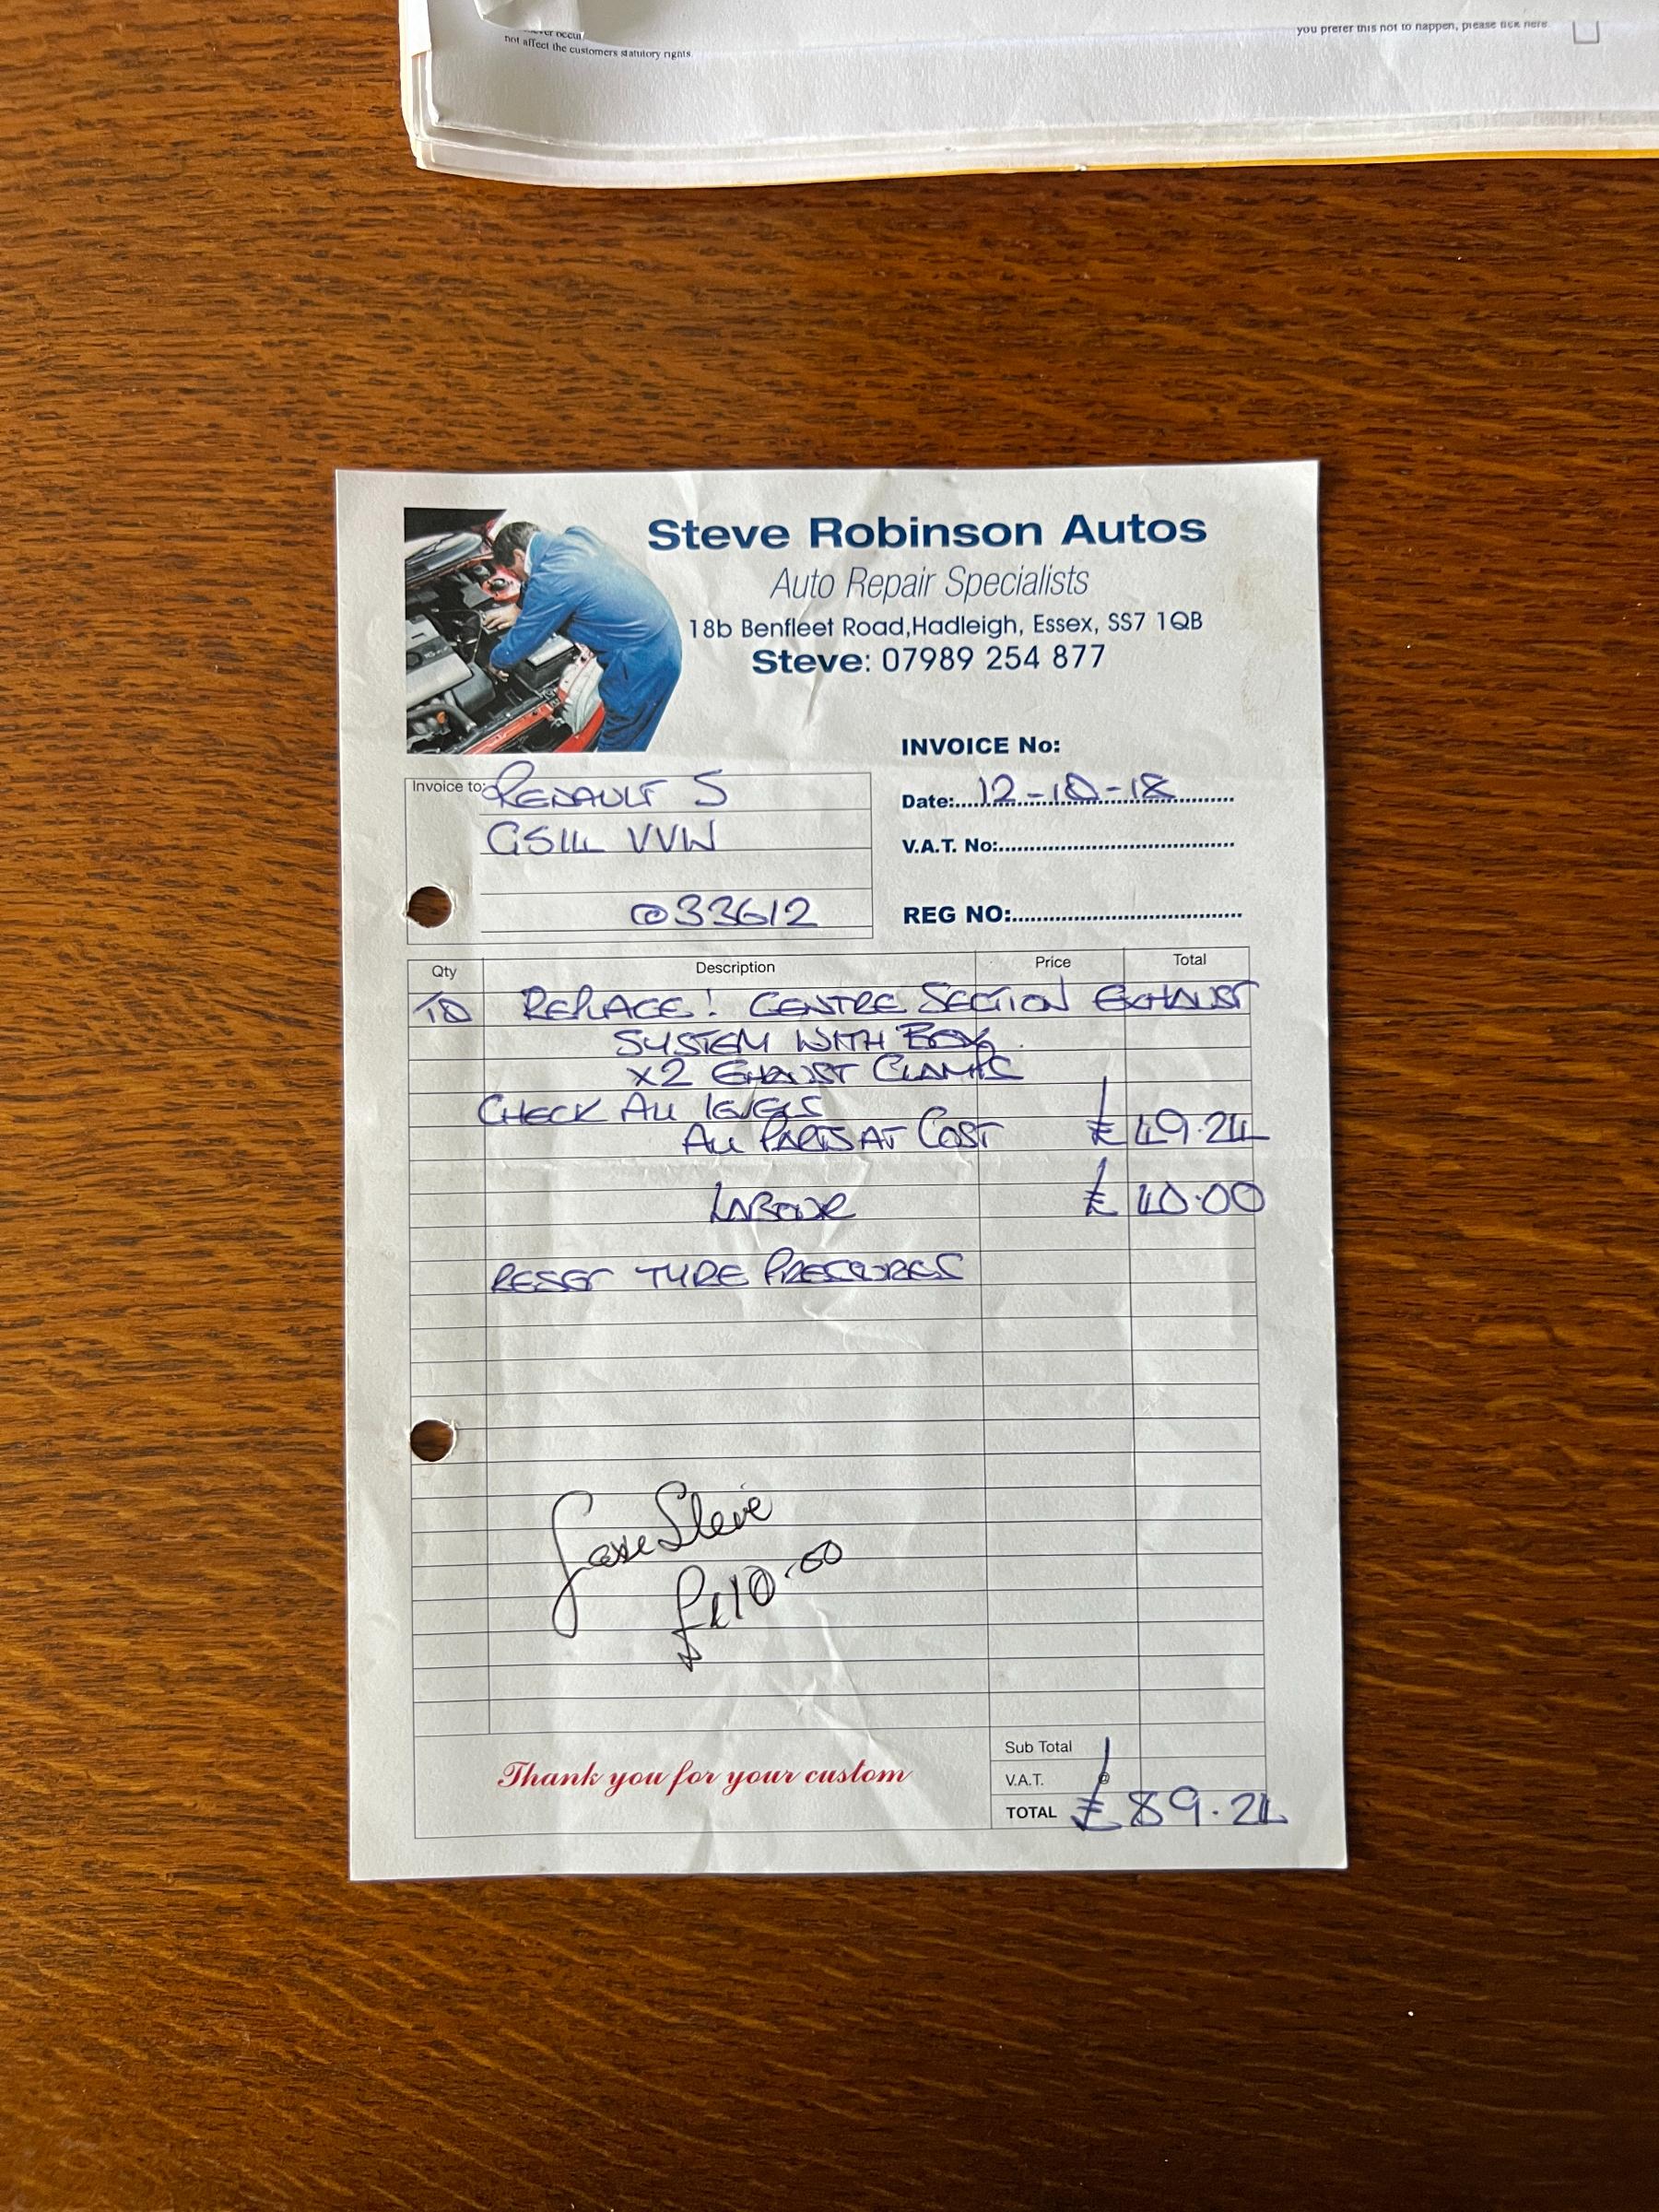 not affect the customers statutory rights.
you prefer this not to happen, please tick here.
Steve Robinson Autos
Auto Repair Specialists
18b Benfleet Road,Hadleigh, Essex, SS7 1QB
Steve: 07989 254 877
INVOICE No:
Invoice to: RENAULT 5
Date: 12-10-18
VVW
V.A.T. No:
@33612
REG NO:
Qty Description Price Total
TO REPLACE! CENTRE SECTION EXHAUST
SYSTEM WITH BOX.
X2 EXHAUST CLAMPS
CHECK ALL LEVELS
ALL PARTS AT COST £ 49.24
LABOUR £ 40.00
RESET TYRE PRESSURES
Gave Steve
£110.00
Sub Total
V.A.T. @
Thank you for your custom
TOTAL £ 89.24